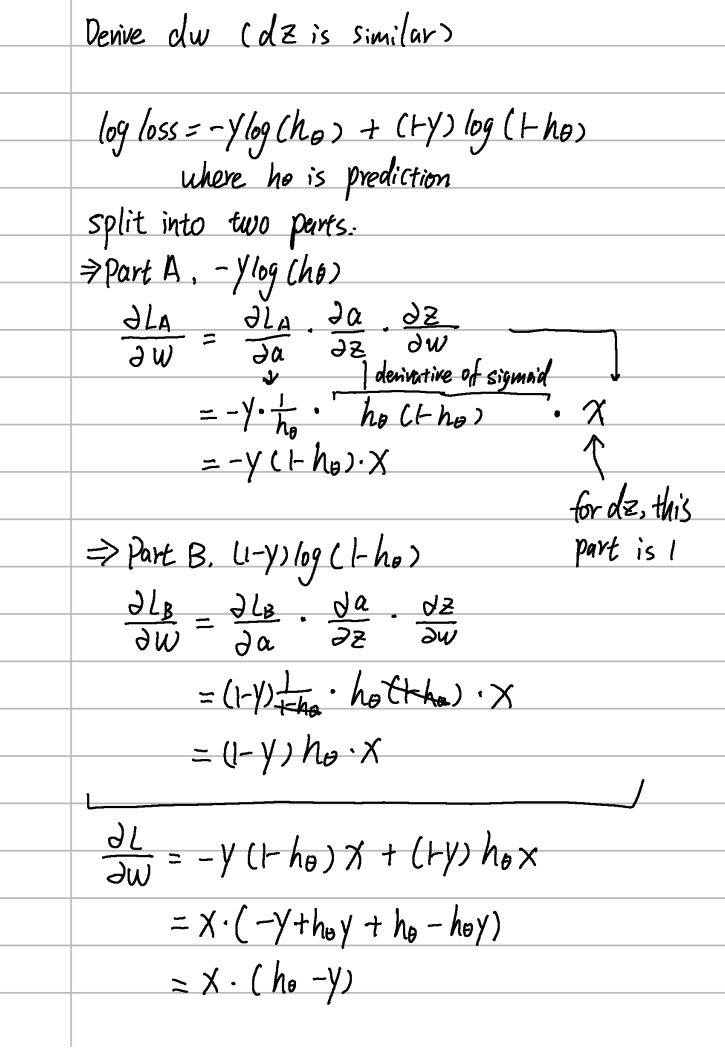 Derive dw (dz is similar)
log loss = -y log(hθ) + (1-y) log(1-hθ)
where hθ is prediction
split into two parts:
⇒ Part A, -y log(hθ)
∂LA/∂w = ∂LA/∂a · ∂a/∂z · ∂z/∂w
derivative of sigmoid
= -y · 1/hθ · hθ(1-hθ) · x
= -y(1-hθ)·x
for dz, this
part is 1
⇒ Part B. (1-y) log(1-hθ)
∂LB/∂w = ∂LB/∂a · ∂a/∂z · ∂z/∂w
= (1-y) 1/1-hθ · hθ(1-hθ) · x
= (1-y) hθ · x
∂L/∂w = -y(1-hθ)x + (1-y) hθ x
= x · (-y + hθy + hθ - hθy)
= x · (hθ - y)